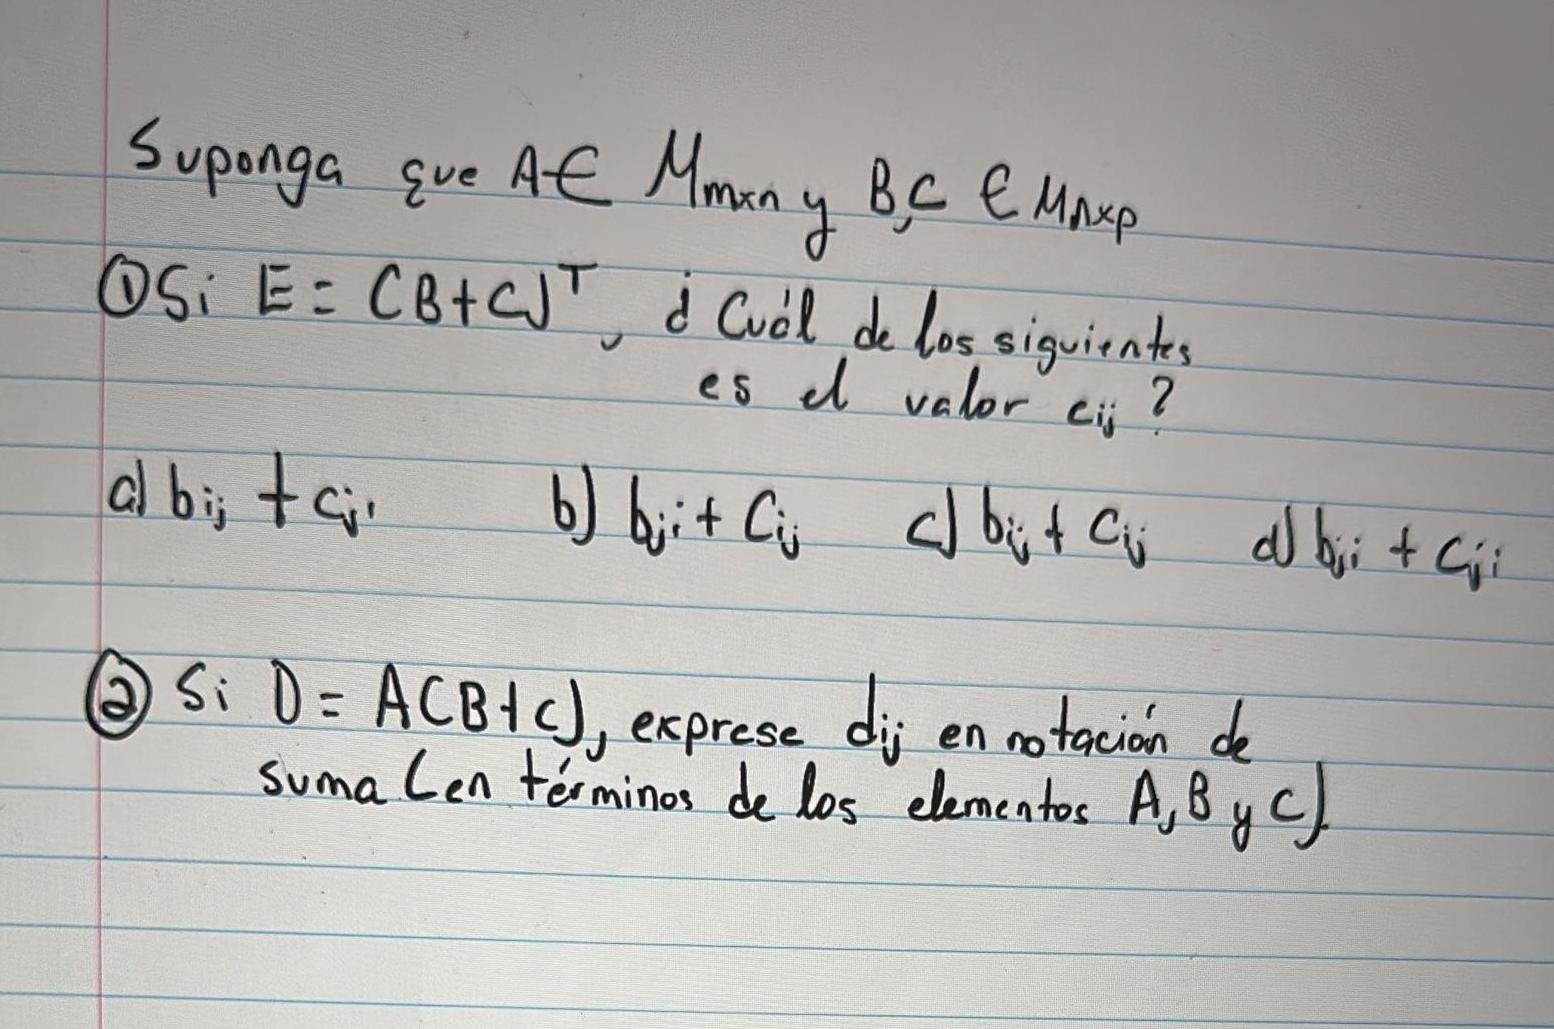 Suponga que A ∈ Mmxn y B,C ∈ Mnxp
① Si E = (B+C)ᵀ, ¿Cuál de los siguientes
es el valor eij ?
a) bij + cji b) bji + Cij c) bij + Cij d) bji + cji
② Si D = A(B+C), exprese dij en notación de
suma (en términos de los elementos A, B y C).